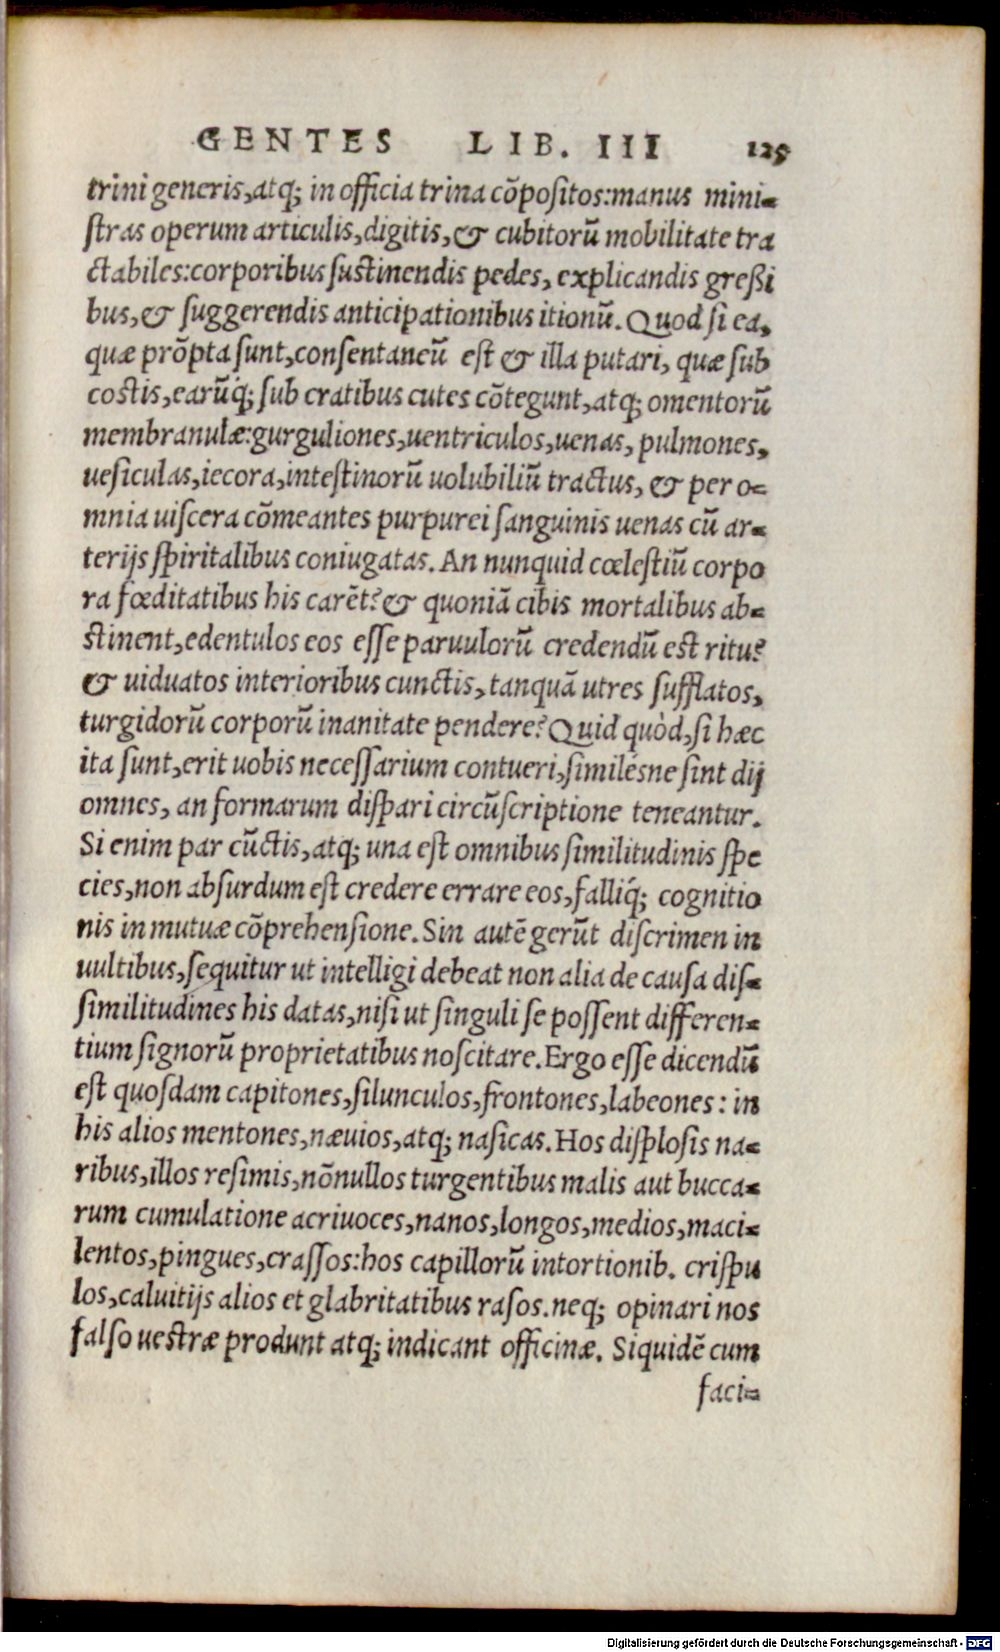 GENTES LIB. III 125
trini generis, atq; in officia trina cōpositos: manus mini-
ſtras operum articulis, digitis, & cubitorū mobilitate tra
ctabiles: corporibus ſustinendis pedes, explicandis greßi
bus, & ſuggerendis anticipationibus itionū. Quod ſi ea,
quæ prōpta ſunt, conſentaneū est & illa putari, quæ ſub
costis, earūq́; ſub cratibus cutes cōtegunt, atq; omentorū
membranulæ: gurguliones, uentriculos, uenas, pulmones,
ueſiculas, iecora, inteſtinorū uolubiliū tractus, & per o-
mnia uiſcera cōmeantes purpurei ſanguinis uenas cū ar-
terijs ſpiritalibus coniugatas. An nunquid cœleſtiū corpo
ra fœditatibus his carēt? & quoniā cibis mortalibus ab-
ſtinent, edentulos eos eſſe paruulorū credendū est ritu?
& uiduatos interioribus cunctis, tanquā utres ſufflatos,
turgidorū corporū inanitate pendere? Quid quòd, ſi hæc
ita ſunt, erit uobis neceſſarium contueri, ſimilésne ſint dij
omnes, an formarum diſpari circūſcriptione teneantur.
Si enim par cūctis, atq; una est omnibus ſimilitudinis ſpe
cies, non abſurdum est credere errare eos, falliq́; cognitio
nis in mutuæ cōprehenſione. Sin autē gerūt diſcrimen in
uultibus, ſequitur ut intelligi debeat non alia de cauſa diſ-
ſimilitudines his datas, niſi ut ſinguli ſe poſſent differen-
tium ſignorū proprietatibus noſcitare. Ergo eſſe dicendū
est quoſdam capitones, ſilunculos, frontones, labeones: in
his alios mentones, næuios, atq; naſicas. Hos diſploſis na-
ribus, illos reſimis, nōnullos turgentibus malis aut bucca-
rum cumulatione acriuoces, nanos, longos, medios, maci-
lentos, pingues, craſſos: hos capillorū intortionib. criſpu
los, caluitijs alios et glabritatibus raſos. neq; opinari nos
falſo uestræ produnt atq; indicant officinæ. Siquidē cum
faci-
Digitalisierung gefördert durch die Deutsche Forschungsgemeinschaft - DFG